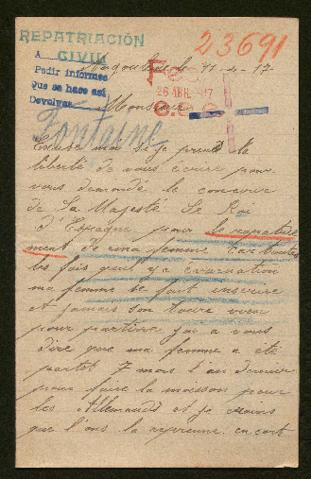 REPATRIACIÓN
CIVIL
23691
A
Pedir informes
Que se hace así
Devolver
11-4-17
26 ABR. 17
Monsieur
Fontaine
Excuse moi si je prend la
liberté de vous écrire pour
vous demandé le concour
de Sa Majesté Le Roi
d'Espagne pour la rapatrie
ment de ma femme car toutes
les fois qu'il y a évacuation
ma femme se fait inscrire
et jamais son tour vien
pour partire j'ai a vous
dire que ma femme a été
partit 7 mois l'an dernier
pour faire la moisson pour
les Allemands et je crains
que l'ons la reprenne encort